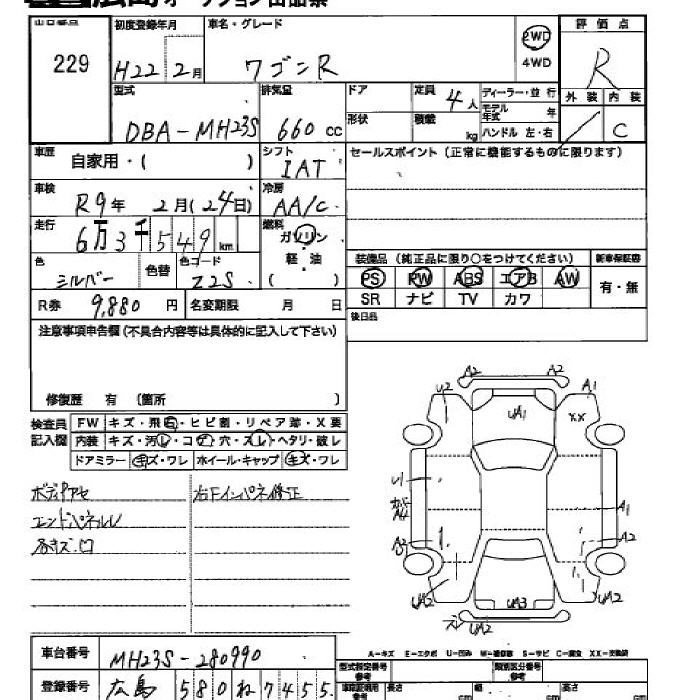 広島オークション出品票
出品番号 初度登録年月 車名・グレード 評価点
229 H22 2月 ワゴンR 2WD R
4WD
型式 排気量 ドア 定員 4人 ディーラー・並行 外装 内装
モデル年式 年
DBA-MH23S 660 cc 形状 積載 kg ハンドル 左・右 / C
車歴 自家用・( ) シフト セールスポイント(正常に機能するものに限ります)
IAT
車検 R9年 2月(24日) 冷房 AA/C
走行 6万3千549km 燃料 ガソリン
色 色替 色コード 軽・油 装備品(純正品に限り○をつけてください) 新車保証書
シルバー Z2S ( ) PS PW ABS エアB AW 有・無
R券 9,880 円 名変期限 月 日 SR ナビ TV カワ
注意事項申告欄(不具合内容等は具体的に記入して下さい) 後日品
修復歴 有 (箇所 )
検査員 FW キズ・飛石・ヒビ割・リペア跡・X要
記入欄 内装 キズ・汚レ・コゲ穴・スレ・ヘタリ・破レ
ドアミラー キズ・ワレ ホイール・キャップ キズ・ワレ
ボディアセ 右Fインパネ修正
エンドパネルU
各キズ.凹
A2 A2
U2 A1
UA1 XX
U1
A4 A1
A2 A2
UA2 UA3 UA2
UA2
A-キズ E-エクボ U-凹み W-補修跡 S-サビ C-腐食 XX-交換済
車台番号 MH23S-280990 型式指定番号 類別区分番号
登録番号 広島 580 ね 7455 長さ cm 幅 cm 高さ cm